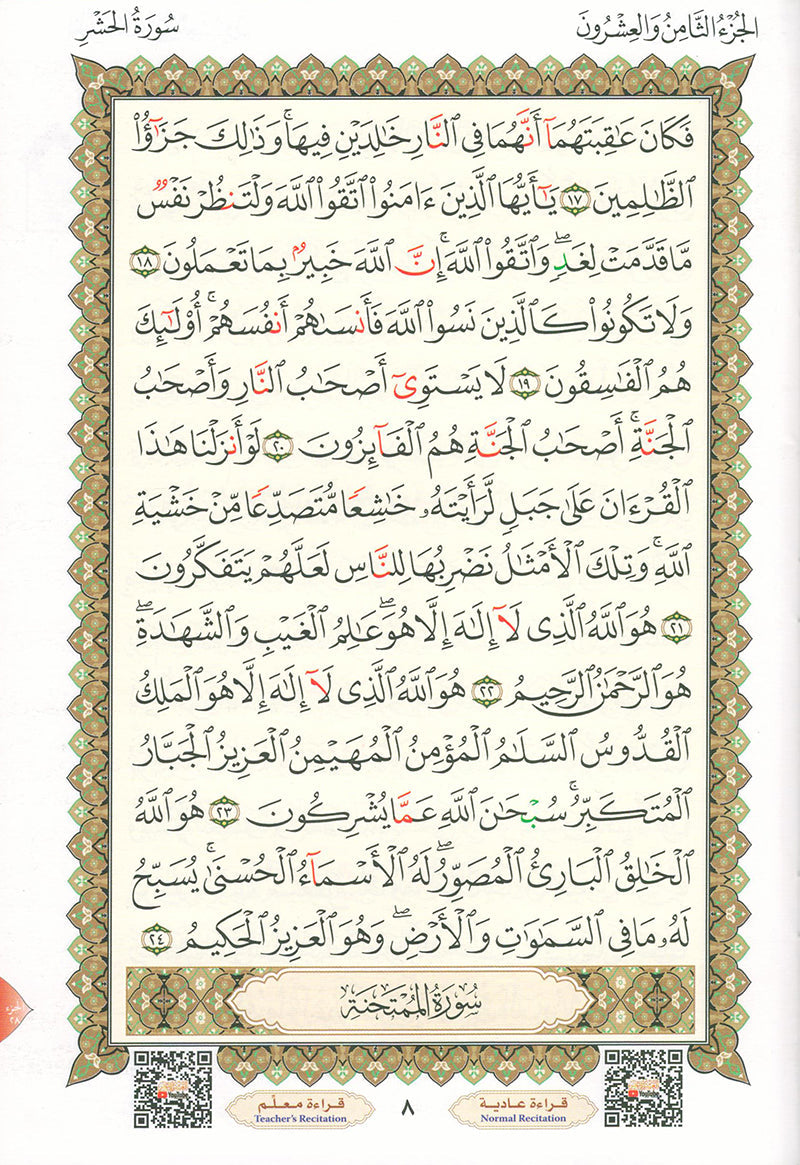 الجُزْءُ الثَّامِنُ وَالعِشْرُونَ
سُورَةُ الحَشْرِ
فَكَانَ عَٰقِبَتَهُمَآ أَنَّهُمَا فِى ٱلنَّارِ خَٰلِدَيْنِ فِيهَا ۚ وَذَٰلِكَ جَزَٰٓؤُا۟
ٱلظَّٰلِمِينَ ١٧ يَٰٓأَيُّهَا ٱلَّذِينَ ءَامَنُوا۟ ٱتَّقُوا۟ ٱللَّهَ وَلْتَنظُرْ نَفْسٌ
مَّا قَدَّمَتْ لِغَدٍ ۖ وَٱتَّقُوا۟ ٱللَّهَ ۚ إِنَّ ٱللَّهَ خَبِيرٌۢ بِمَا تَعْمَلُونَ ١٨
وَلَا تَكُونُوا۟ كَٱلَّذِينَ نَسُوا۟ ٱللَّهَ فَأَنسَىٰهُمْ أَنفُسَهُمْ ۚ أُو۟لَٰٓئِكَ
هُمُ ٱلْفَٰسِقُونَ ١٩ لَا يَسْتَوِىٓ أَصْحَٰبُ ٱلنَّارِ وَأَصْحَٰبُ
ٱلْجَنَّةِ ۚ أَصْحَٰبُ ٱلْجَنَّةِ هُمُ ٱلْفَآئِزُونَ ٢٠ لَوْ أَنزَلْنَا هَٰذَا
ٱلْقُرْءَانَ عَلَىٰ جَبَلٍ لَّرَأَيْتَهُۥ خَٰشِعًا مُّتَصَدِّعًا مِّنْ خَشْيَةِ
ٱللَّهِ ۚ وَتِلْكَ ٱلْأَمْثَٰلُ نَضْرِبُهَا لِلنَّاسِ لَعَلَّهُمْ يَتَفَكَّرُونَ
٢١ هُوَ ٱللَّهُ ٱلَّذِى لَآ إِلَٰهَ إِلَّا هُوَ ۖ عَٰلِمُ ٱلْغَيْبِ وَٱلشَّهَٰدَةِ ۖ
هُوَ ٱلرَّحْمَٰنُ ٱلرَّحِيمُ ٢٢ هُوَ ٱللَّهُ ٱلَّذِى لَآ إِلَٰهَ إِلَّا هُوَ ٱلْمَلِكُ
ٱلْقُدُّوسُ ٱلسَّلَٰمُ ٱلْمُؤْمِنُ ٱلْمُهَيْمِنُ ٱلْعَزِيزُ ٱلْجَبَّارُ
ٱلْمُتَكَبِّرُ ۚ سُبْحَٰنَ ٱللَّهِ عَمَّا يُشْرِكُونَ ٢٣ هُوَ ٱللَّهُ
ٱلْخَٰلِقُ ٱلْبَارِئُ ٱلْمُصَوِّرُ ۖ لَهُ ٱلْأَسْمَآءُ ٱلْحُسْنَىٰ ۚ يُسَبِّحُ
لَهُۥ مَا فِى ٱلسَّمَٰوَٰتِ وَٱلْأَرْضِ ۖ وَهُوَ ٱلْعَزِيزُ ٱلْحَكِيمُ ٢٤
سُورَةُ المُمْتَحنَةِ
قراءة عادية
Normal Recitation
٨
قراءة معلّم
Teacher's Recitation
YouTube
YouTube